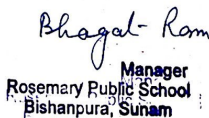 Bhagat Ram
Manager
Rosemary Public School
Bishanpura, Sunam